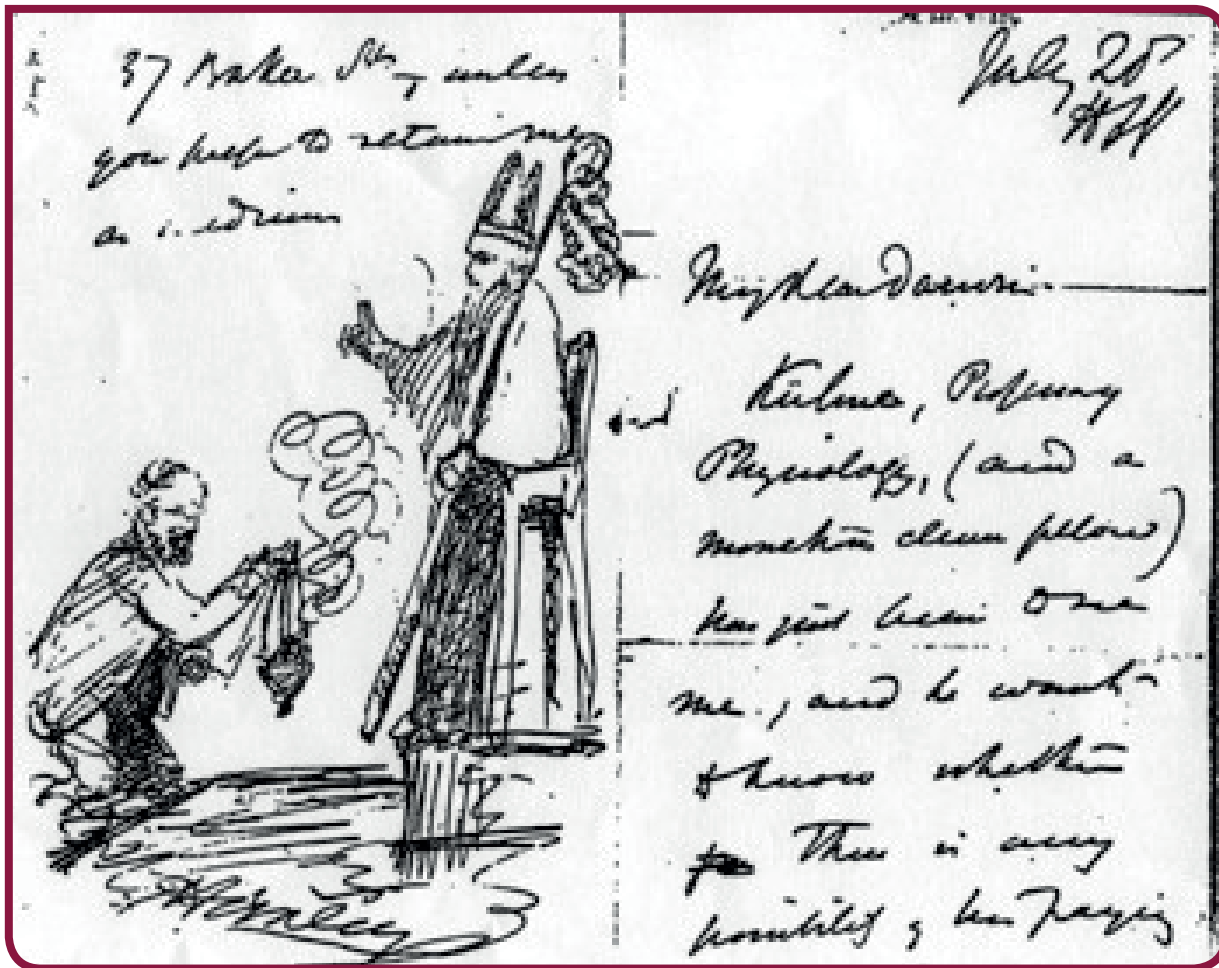 37 Baker Str, unless
you prefer to retain me
as
July 20
My dear Darwin
Kühne, Prof of
Physiology, (and a
clever fellow)
has just been
me, and he wants
to know whether
There is any
possibility of his paying